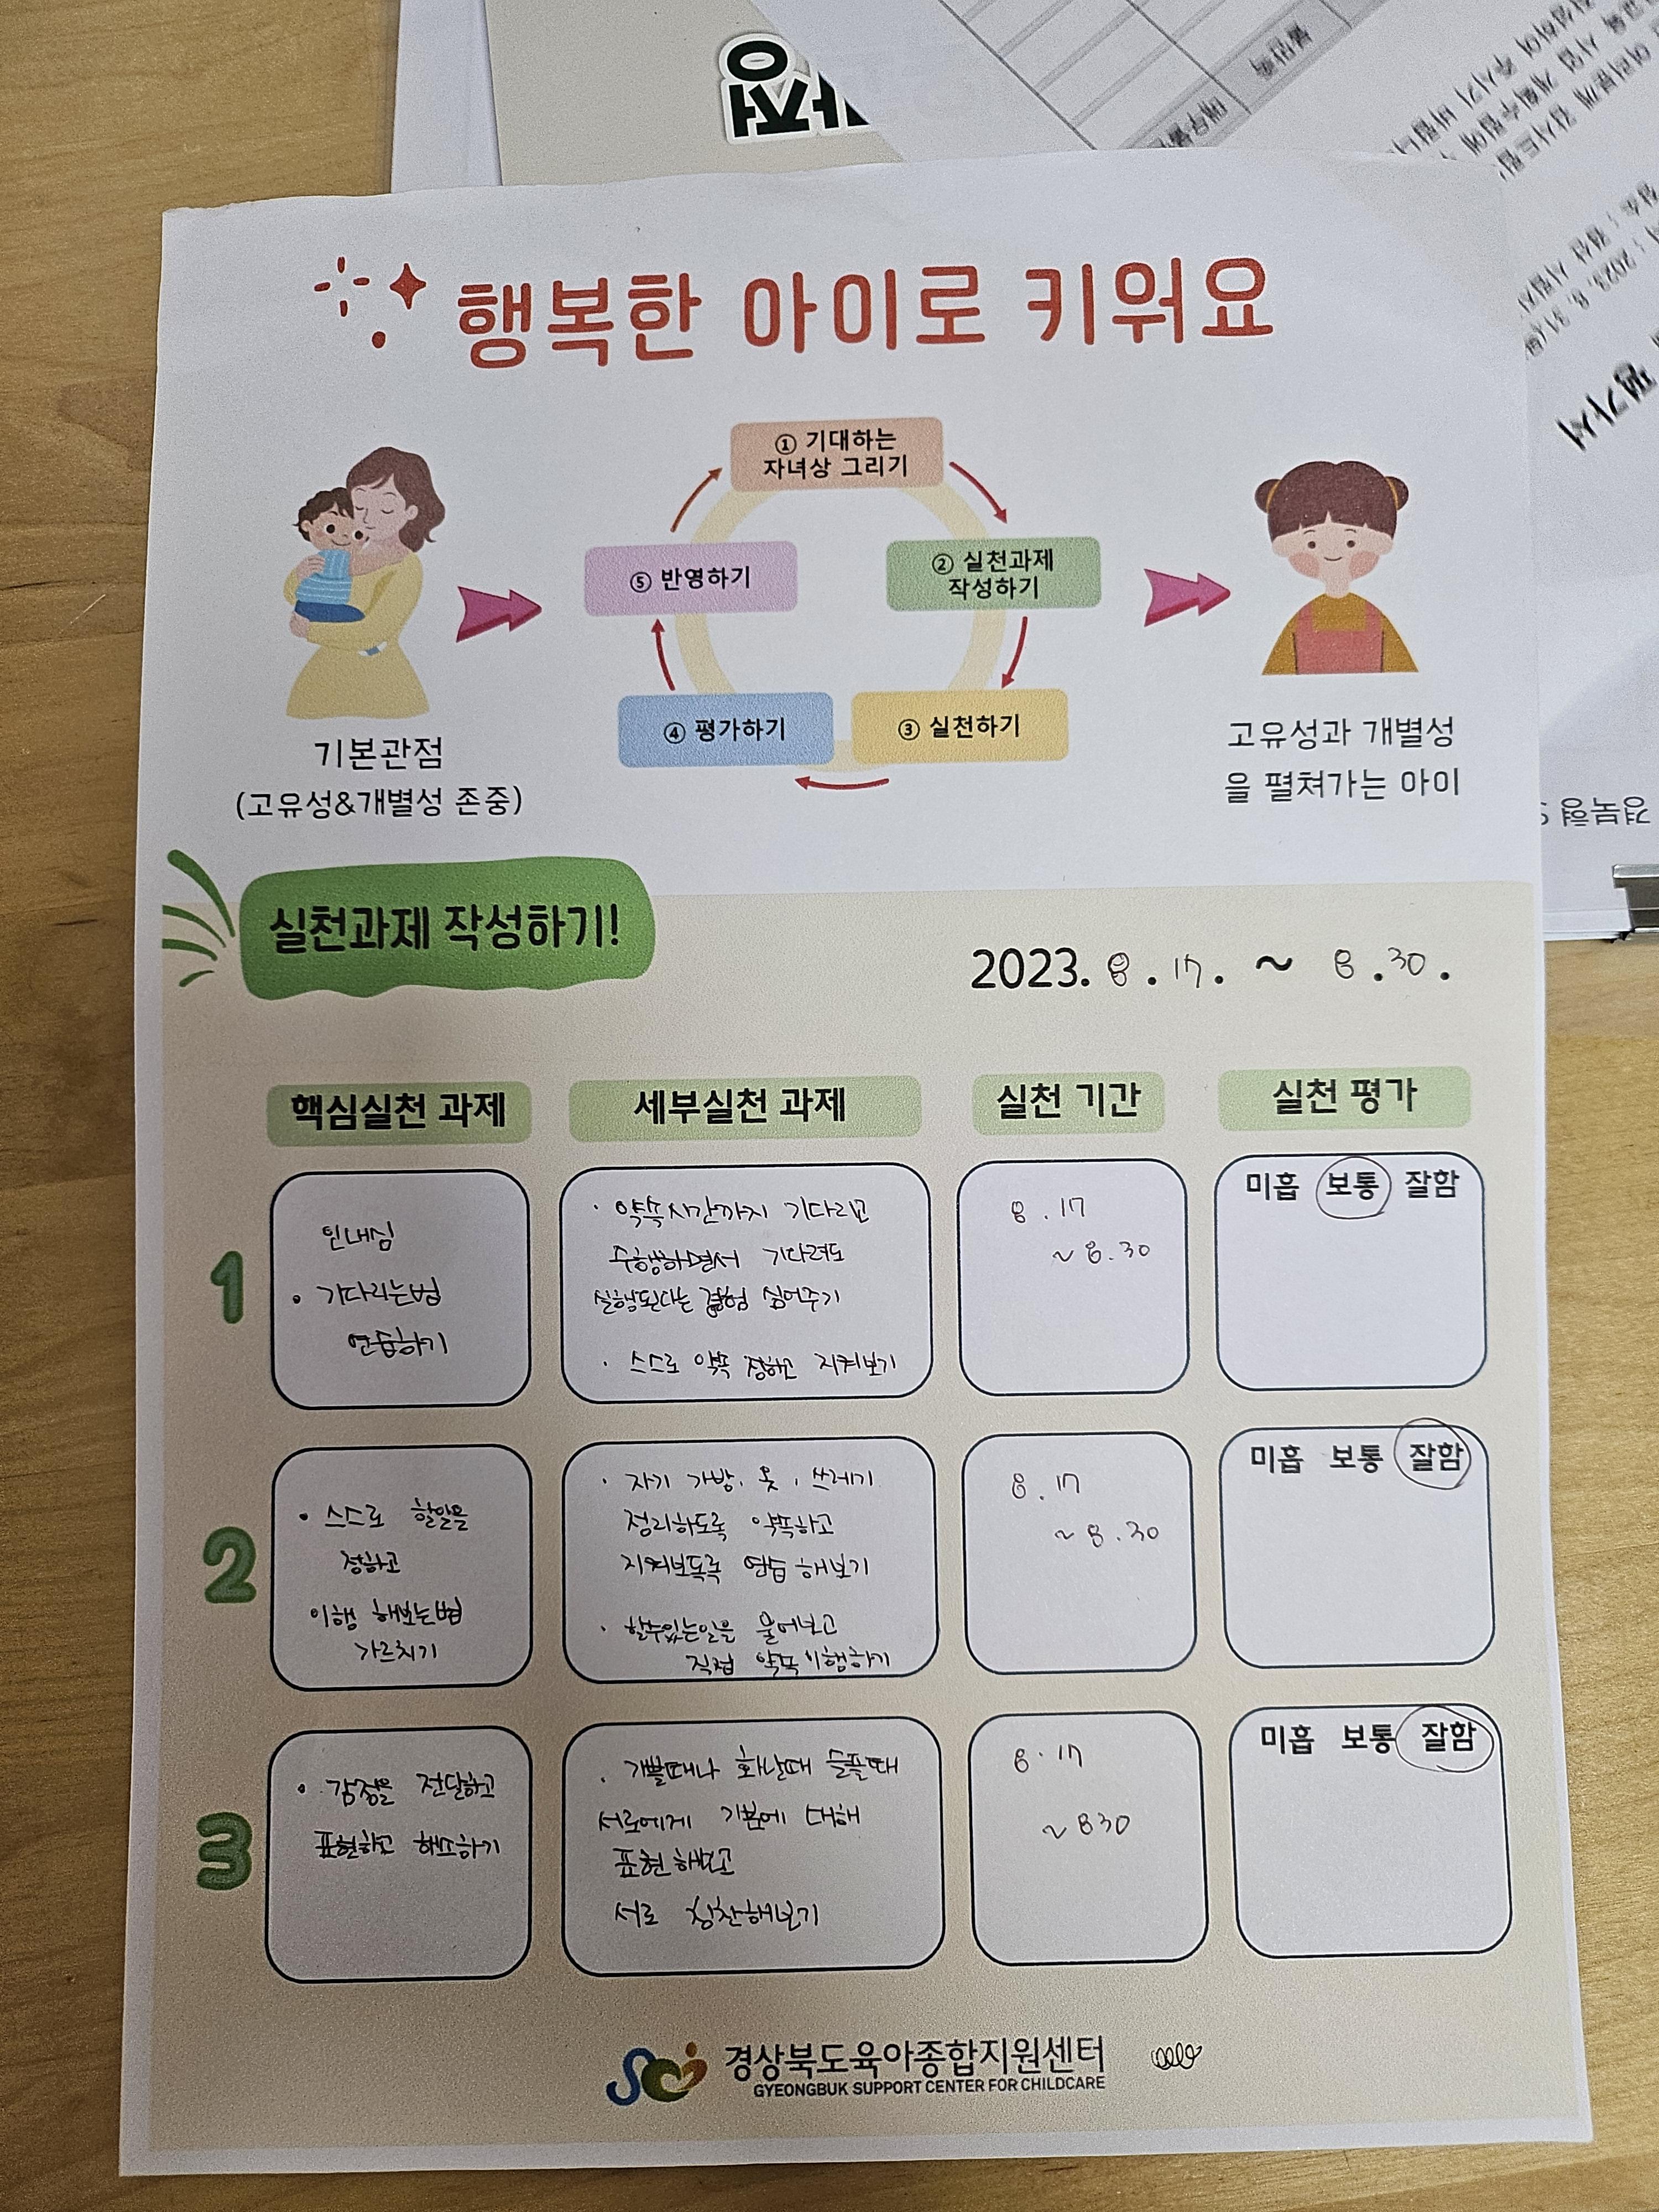 행복한 아이로 키워요
① 기대하는
자녀상 그리기
② 실천과제
작성하기
③ 실천하기
④ 평가하기
⑤ 반영하기
기본관점
(고유성&개별성 존중)
고유성과 개별성
을 펼쳐가는 아이
실천과제 작성하기!
2023. 8. 17. ~ 8. 30.
핵심실천 과제 세부실천 과제 실천 기간 실천 평가
1
인내심
• 기다리는법
연습하기
· 약속시간까지 기다리고
수행하면서 기다려도
실행된다는 경험 심어주기
· 스스로 약속 정하고 지켜보기
8. 17
~ 8. 30
미흡 보통 잘함
2
• 스스로 할일을
정하고
이행 해보는법
가르치기
· 자기 가방, 옷, 쓰레기
정리하도록 약속하고
지켜보도록 연습 해보기
· 할수있는일을 물어보고
직접 약속 이행하기
8. 17
~ 8. 30
미흡 보통 잘함
3
• 감정을 전달하고
표현하고 해소하기
· 기쁠때나 화날때 슬플때
서로에게 기분에 대해
표현 해보고
서로 칭찬해보기
8. 17
~ 830
미흡 보통 잘함
경상북도육아종합지원센터
GYEONGBUK SUPPORT CENTER FOR CHILDCARE
평가서
불만족